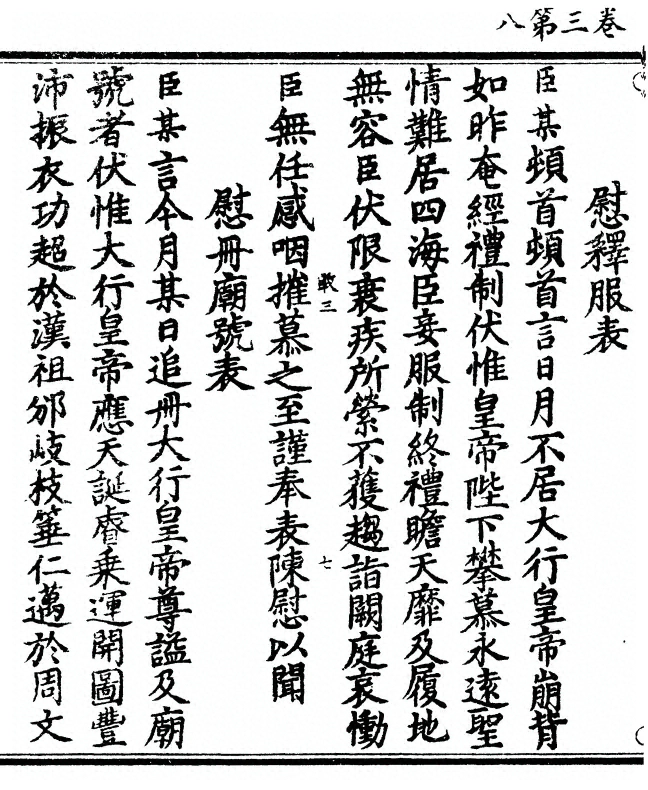 八第三卷
慰釋服表
臣某頓首頓首言日月不居大行皇帝崩背
如昨奄經禮制伏惟皇帝陛下攀慕永遠聖
情難居四海臣妾服制終禮瞻天靡及履地
無容臣伏限衰疾所縈不獲趨詣闕庭哀慟
臣無任感咽摧慕之至謹奉表陳慰以聞
數三
七
慰冊廟號表
臣某言今月某日追冊大行皇帝尊謚及廟
號者伏惟大行皇帝應天誕睿乘運開圖豐
沛振衣功超於漢祖邠岐杖箠仁邁於周文